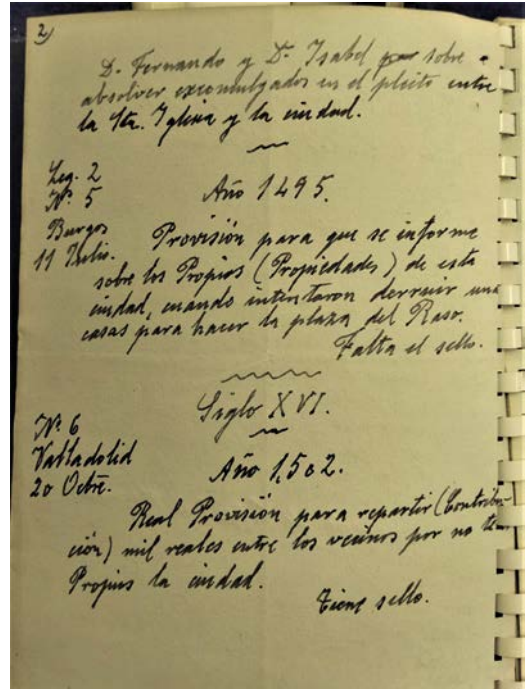 2)
D. Fernando y Dª Isabel sobre
absolver excomulgados en el pleito entre
la Sta. Iglesia y la ciudad.
Leg. 2
Nº 5
Año 1495.
Burgos
11 Julio.
Provisión para que se informe
sobre los Propios (Propiedades) de esta
ciudad, cuando intentaron derruir una
casas para hacer la plaza del Raso.
Falta el sello.
Siglo XVI.
Nº 6
Valladolid
20 Octre.
Año 1,502.
Real Provisión para repartir (Contribu-
ción) mil reales entre los vecinos por no
Propios la ciudad.
Tiene sello.